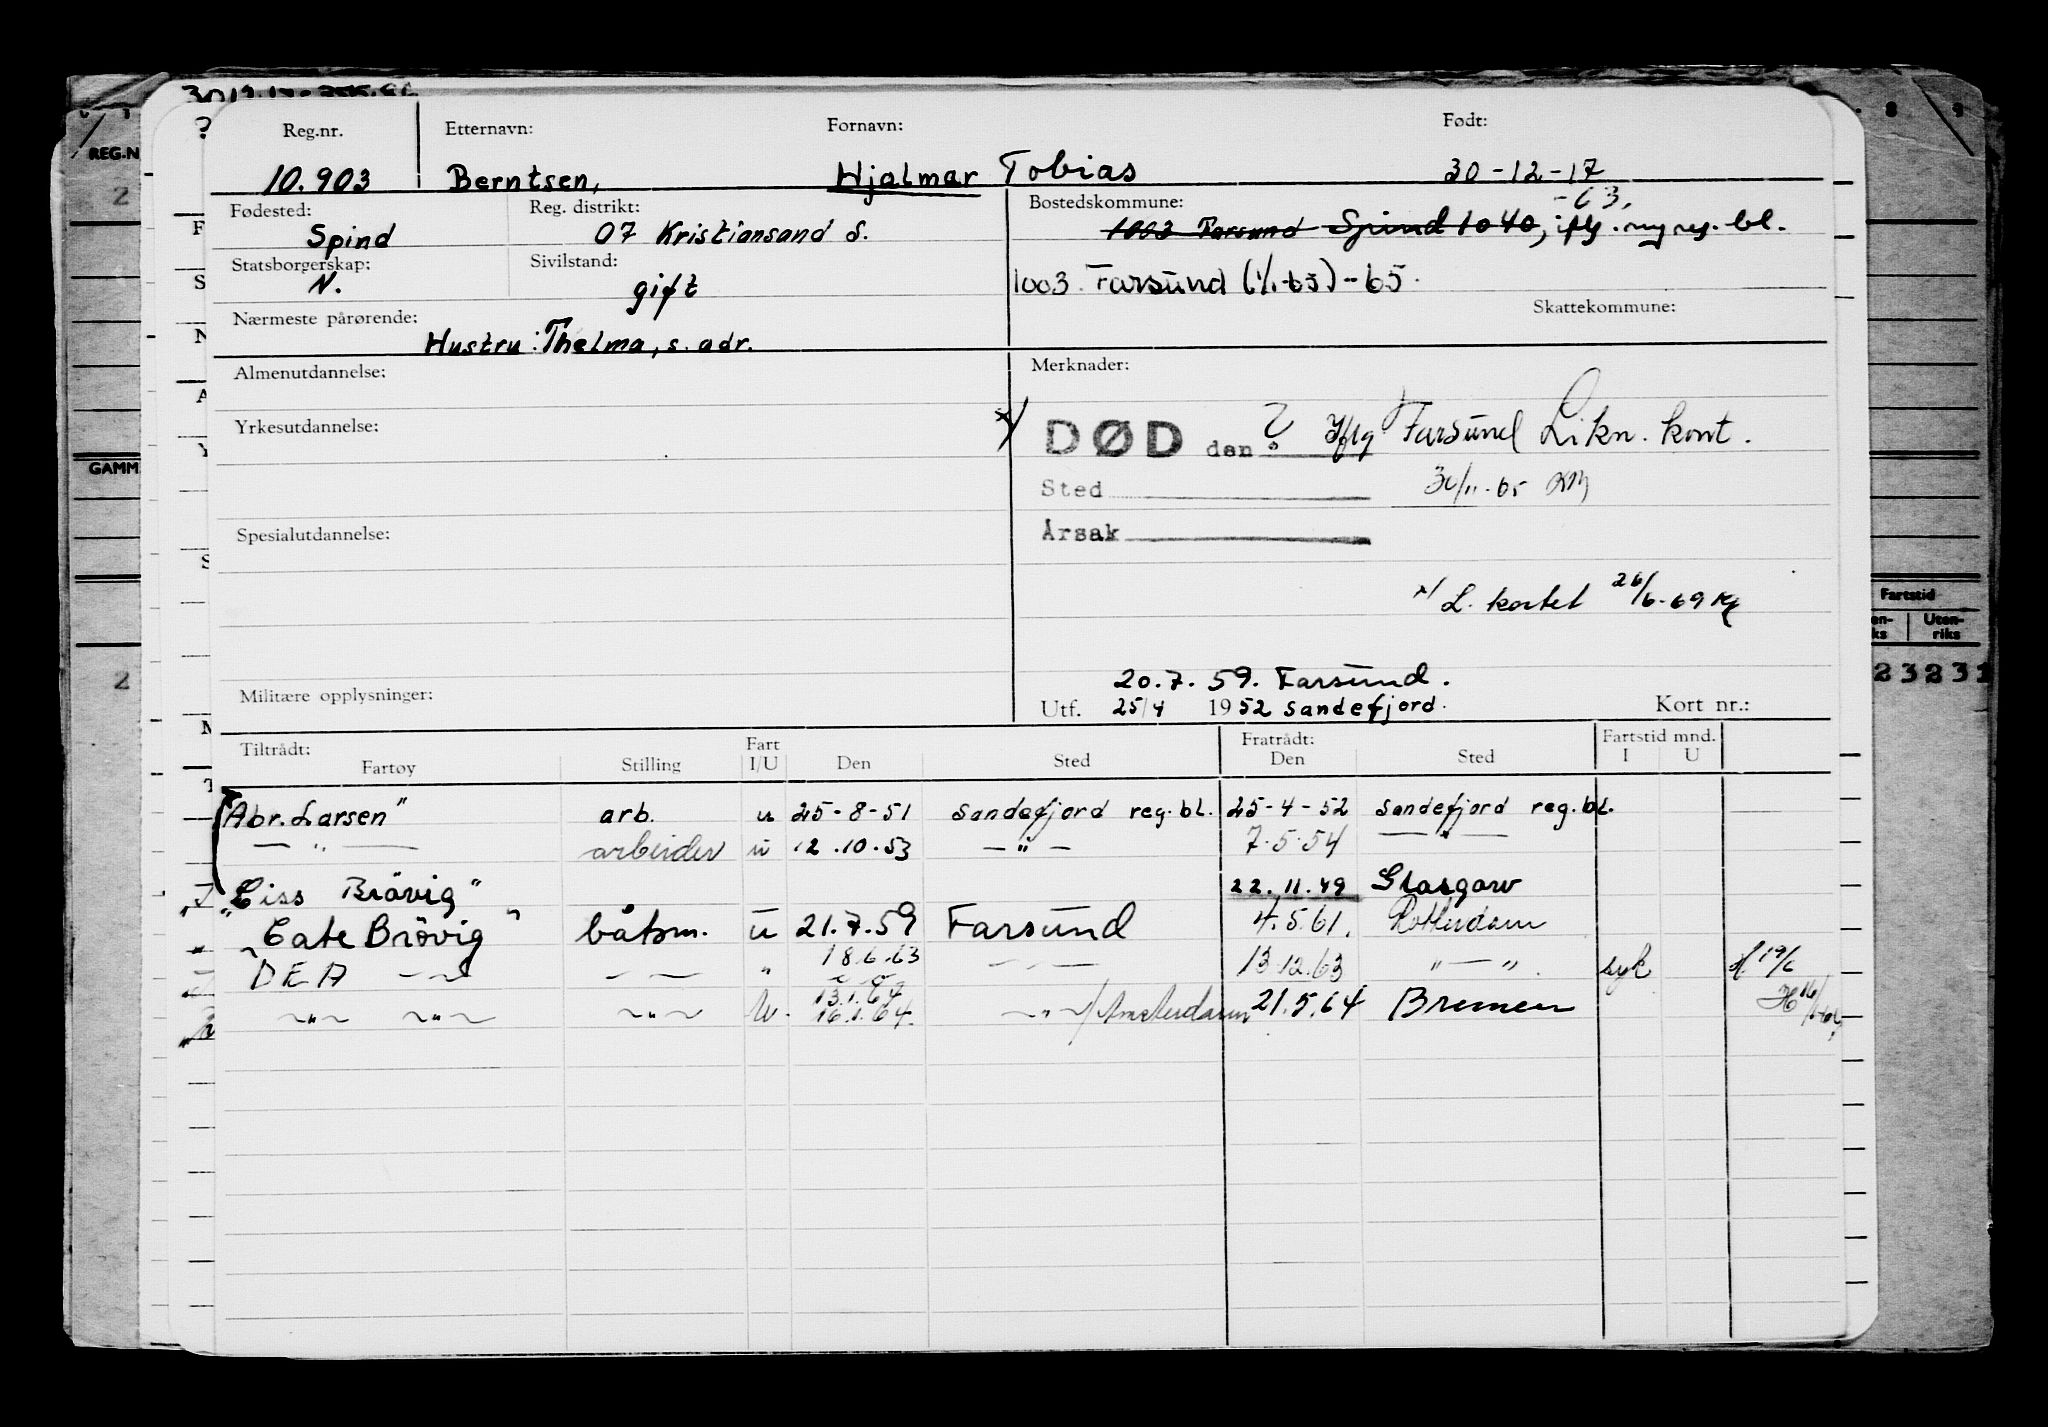 Reg.nr. Etternavn: Fornavn: Født:
10.903 Berntsen, Hjalmar Tobias 30-12-17
Fødested: Reg. distrikt: Bostedskommune: -63.
Spind 07 Kristiansand S. 1003 Farsund Spind 1040, iflg. ny reg. bl.
Statsborgerskap: Sivilstand:
N. gift 1003 Farsund (1/1-63)-65.
Nærmeste pårørende: Skattekommune:
Hustru: Thelma, s. adr.
Almenutdannelse: Merknader:
Yrkesutdannelse: x/ DØD den ? Iflg Farsund Likn. kont.
Sted 30/11-65
Spesialutdannelse: Årsak
x/ L. kortet 26/6-69
20.7.59. Farsund.
Militære opplysninger: Utf. 25/4 1952 Sandefjord. Kort nr.:
Tiltrådt: Fart Fratrådt: Fartstid mnd.
Fartøy Stilling I/U Den Sted Den Sted I U
Abr. Larsen" arb. u 25-8-51 Sandefjord reg.bl. 25-4-52 Sandefjord reg.bl.
— " — arbeider u 12.10.53 — " — 7.5.54 — " —
"Liss Brövig" 22.11.49 Glasgow
"Cate Brövig" båtsm. u 21.7.59 Farsund 4.5.61. Rotterdam
DEA — — — — " 18.6.63 — — 13.12.63 " — " syk 19/6
— " — — " — — " — u. 13.1.64 16.1.64. — " — / Amsterdam 21.5.64 Bremen
REG.N
2
GAMM
2
8 9
Fartstid
Uten-
riks